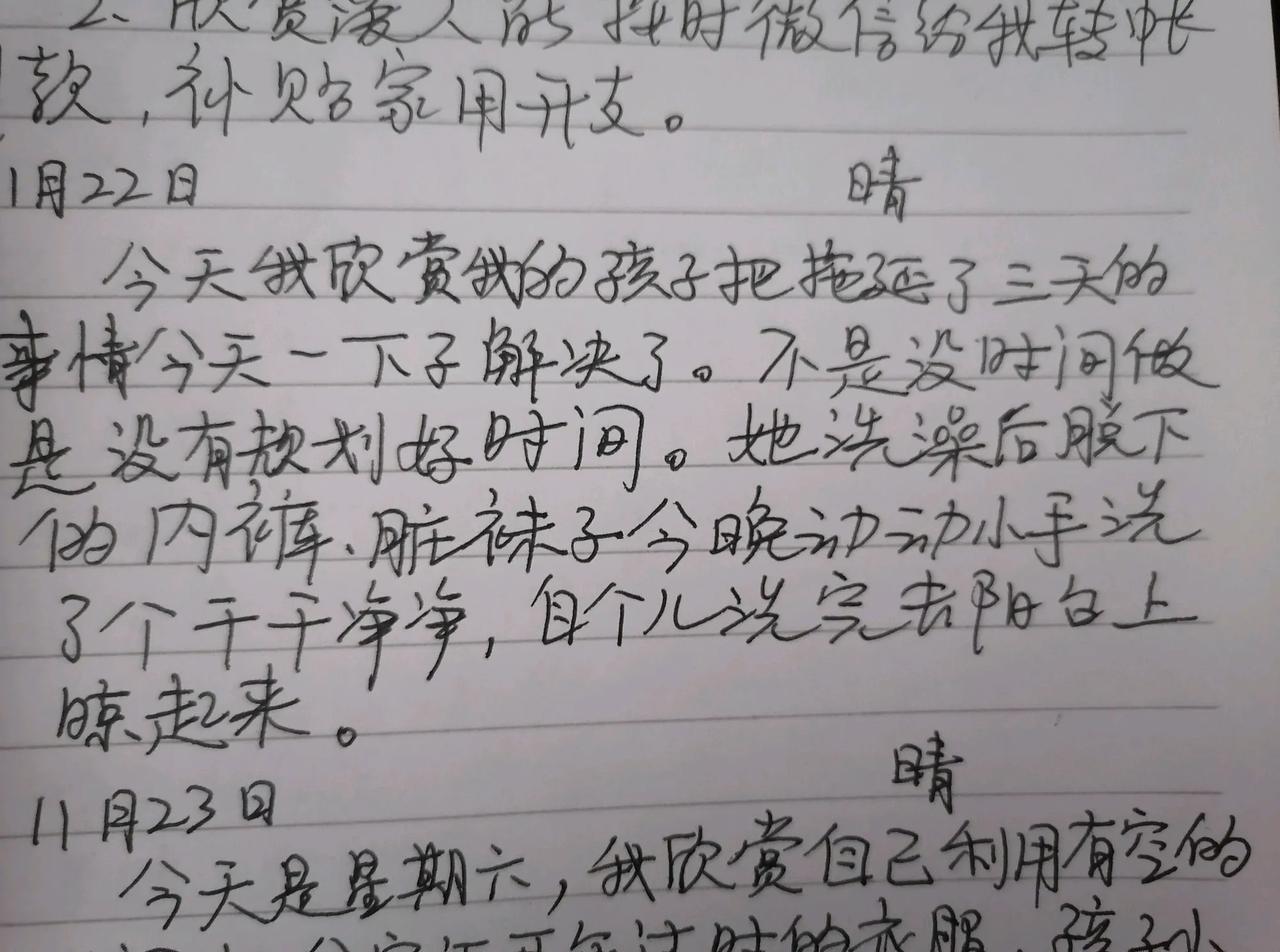 2、欣赏爱人能按时微信给我转帐
款,补贴家用开支。
1月22日 晴
今天我欣赏我的孩子把拖延了三天的
事情今天一下子解决了。不是没时间做
是没有规划好时间。她洗澡后脱下
的内裤、脏袜子今晚动动小手洗
了个干干净净,自个儿洗完去阳台上
晾起来。
11月23日 晴
今天是星期六,我欣赏自己利用有空的
过时的衣服,孩子小